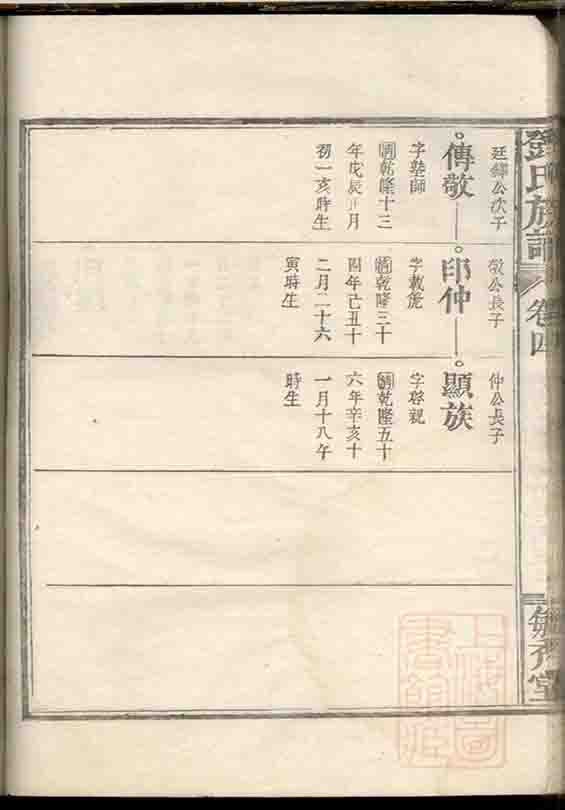 鄧氏族譜
卷四
廷鐸公次子
傳敬
字塾師
清乾隆十三
年戊辰正月
初一亥時生
敬公長子
印仲
字敦宦
清乾隆三十
四年己丑十
二月二十六
寅時生
仲公長子
顯族
字榕親
清乾隆五十
六年辛亥十
一月十八午
時生
上海圖書館藏